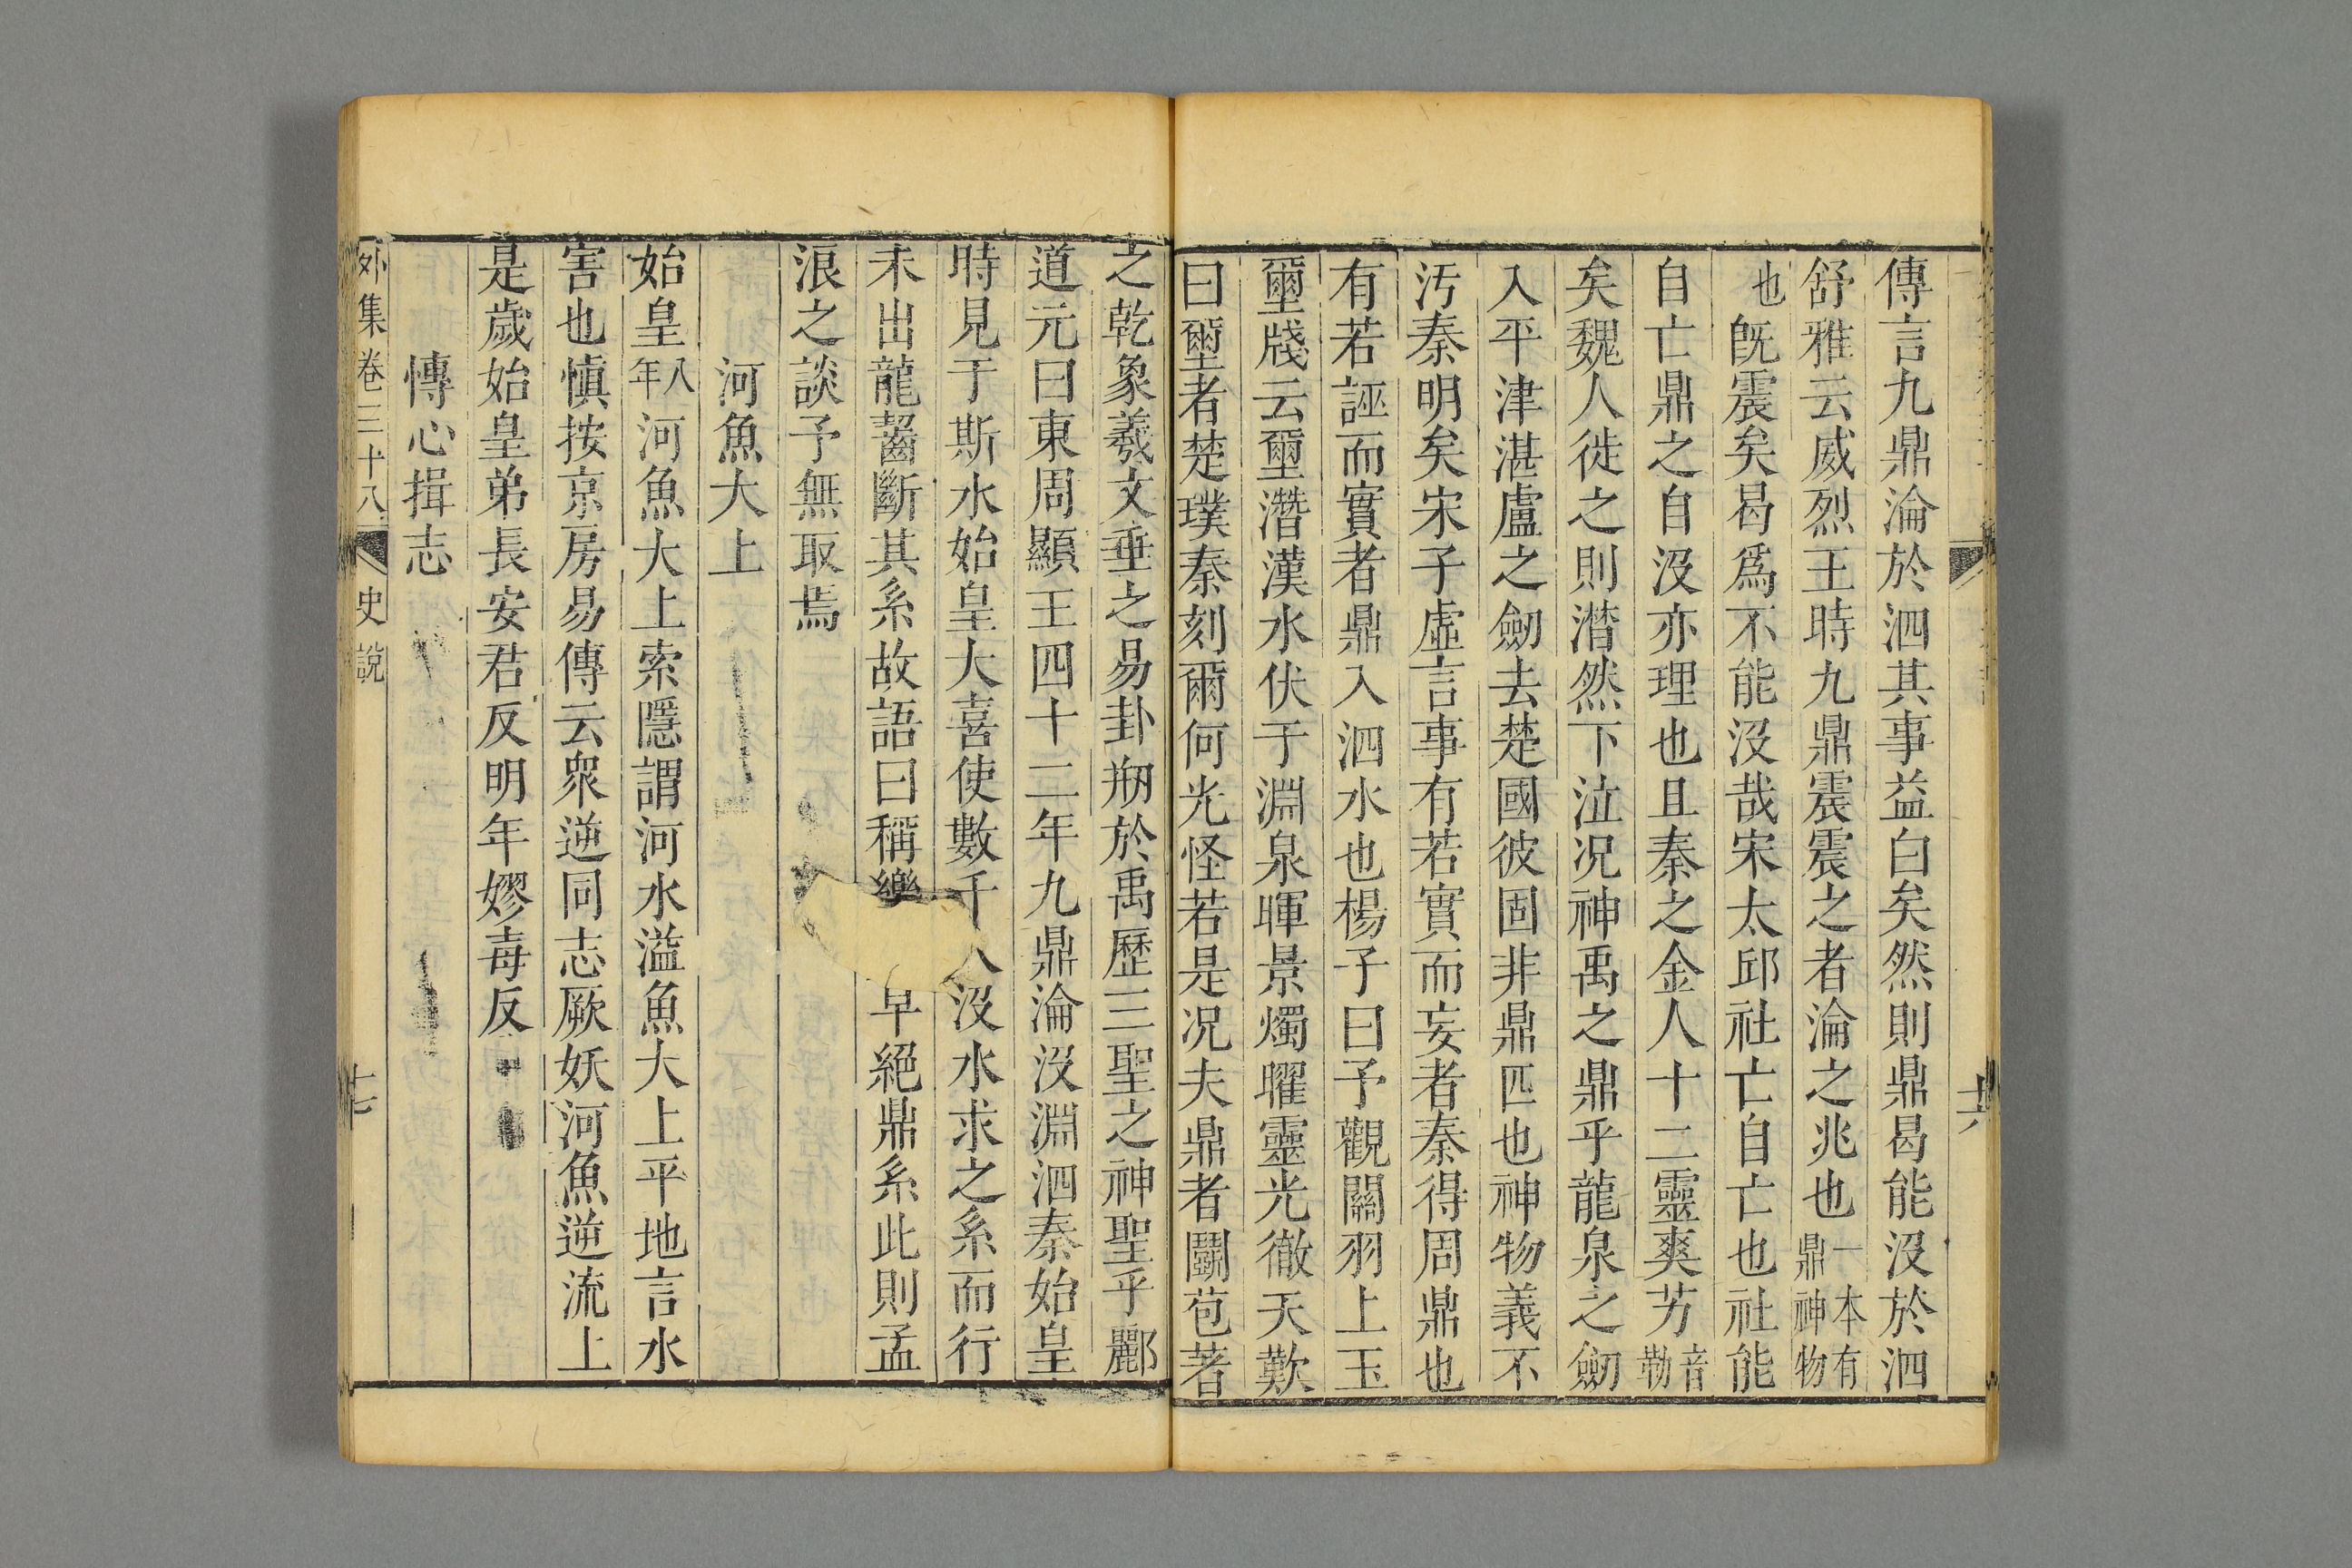 傳言九鼎淪於泗其事益白矣然則鼎曷能沒於泗
舒雅云威烈王時九鼎震震之者淪之兆也一本有鼎神物
也既震矣曷爲不能沒哉宋太邱社亡自亡也社能
自亡鼎之自沒亦理也且秦之金人十二靈爽芳音勒
矣魏人徙之則潸然下泣况神禹之鼎乎龍泉之劒
入平津湛盧之劒去楚國彼固非鼎匹也神物義不
汚秦明矣宋子虛言事有若實而妄者秦得周鼎也
有若誣而實者鼎入泗水也楊子曰予觀關羽上玉
璽牋云璽潛漢水伏于淵泉暉景燭曜靈光徹天歎
曰璽者楚璞秦刻爾何光怪若是况夫鼎者圖苞著
之乾象羲文垂之易卦剏於禹歷三聖之神聖乎酈
道元曰東周顯王四十二年九鼎淪沒淵泗秦始皇
時見于斯水始皇大喜使數千人沒水求之系而行
未出龍齧斷其系故語曰稱樂早絕鼎系此則孟
浪之談予無取焉
河魚大上
始皇八年河魚大上索隱謂河水溢魚大上平地言水
害也愼按京房易傳云衆逆同志厥妖河魚逆流上
是歲始皇弟長安君反明年嫪毐反
慱心揖志
外集卷三十八 史說 十七
十六